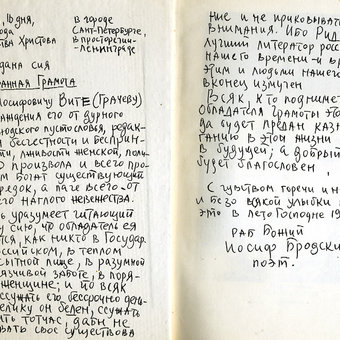 , 10 дня,
ода
ства Христова
в городе
Санкт-Петербурге,
в просторечии-
-Ленинграде
дана сия
ранная Грамота
Иосифовичу Вите (Грачеву)
раждения его от дурного
людского пустословья, редак-
бесчестности и бесприн-
ти, лживости женской, поли-
о произвола и всего про-
ем богат существующий
рядок, а паче всего- от
его наглого невежества.
ь уразумеет читающий
у сию, что обладатель ея
тся, как никто в Государ.
оссийском, в теплом
сытной пище, в разумной
язчивой заботе, в поря-
женщине; и по всяк
ссужать его бессрочно день-
елику он беден, ссужать
ить тотчас, дабы не
овать свое существова
ние и не приковывать
внимания. Ибо Рид
лучший литератор росс
нашего времени - и вр
этим и людьми нашего
вконец измучен
Всяк, кто поднимет
обладателя грамоты этой
да будет предан казн
ганию в этой жизни
в будущей; а добрый
будет благословен.
С чувством горечи и н
и безо всякой улыбки
это в лето Господне 19
раб Божий
Иосиф Бродски
поэт.